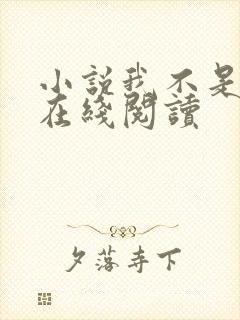 小説我不是
在綫閱讀
夕落寺下